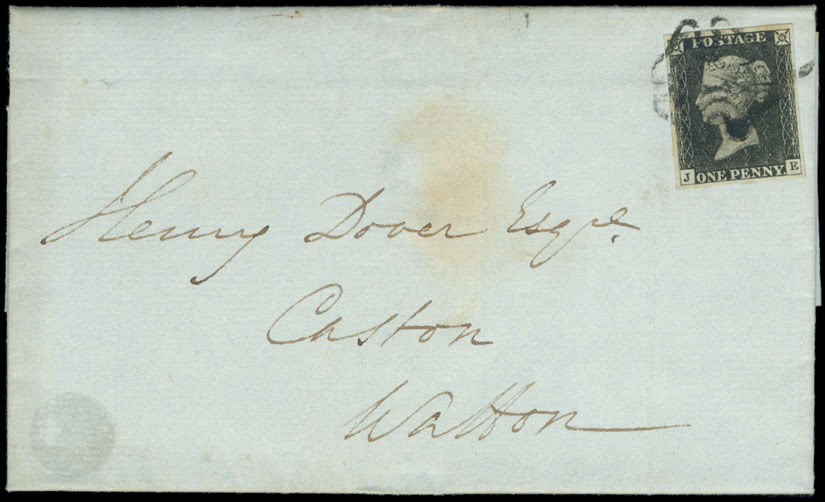 POSTAGE
J ONE PENNY E
Henry Dover Esqre.
Caston
Watton